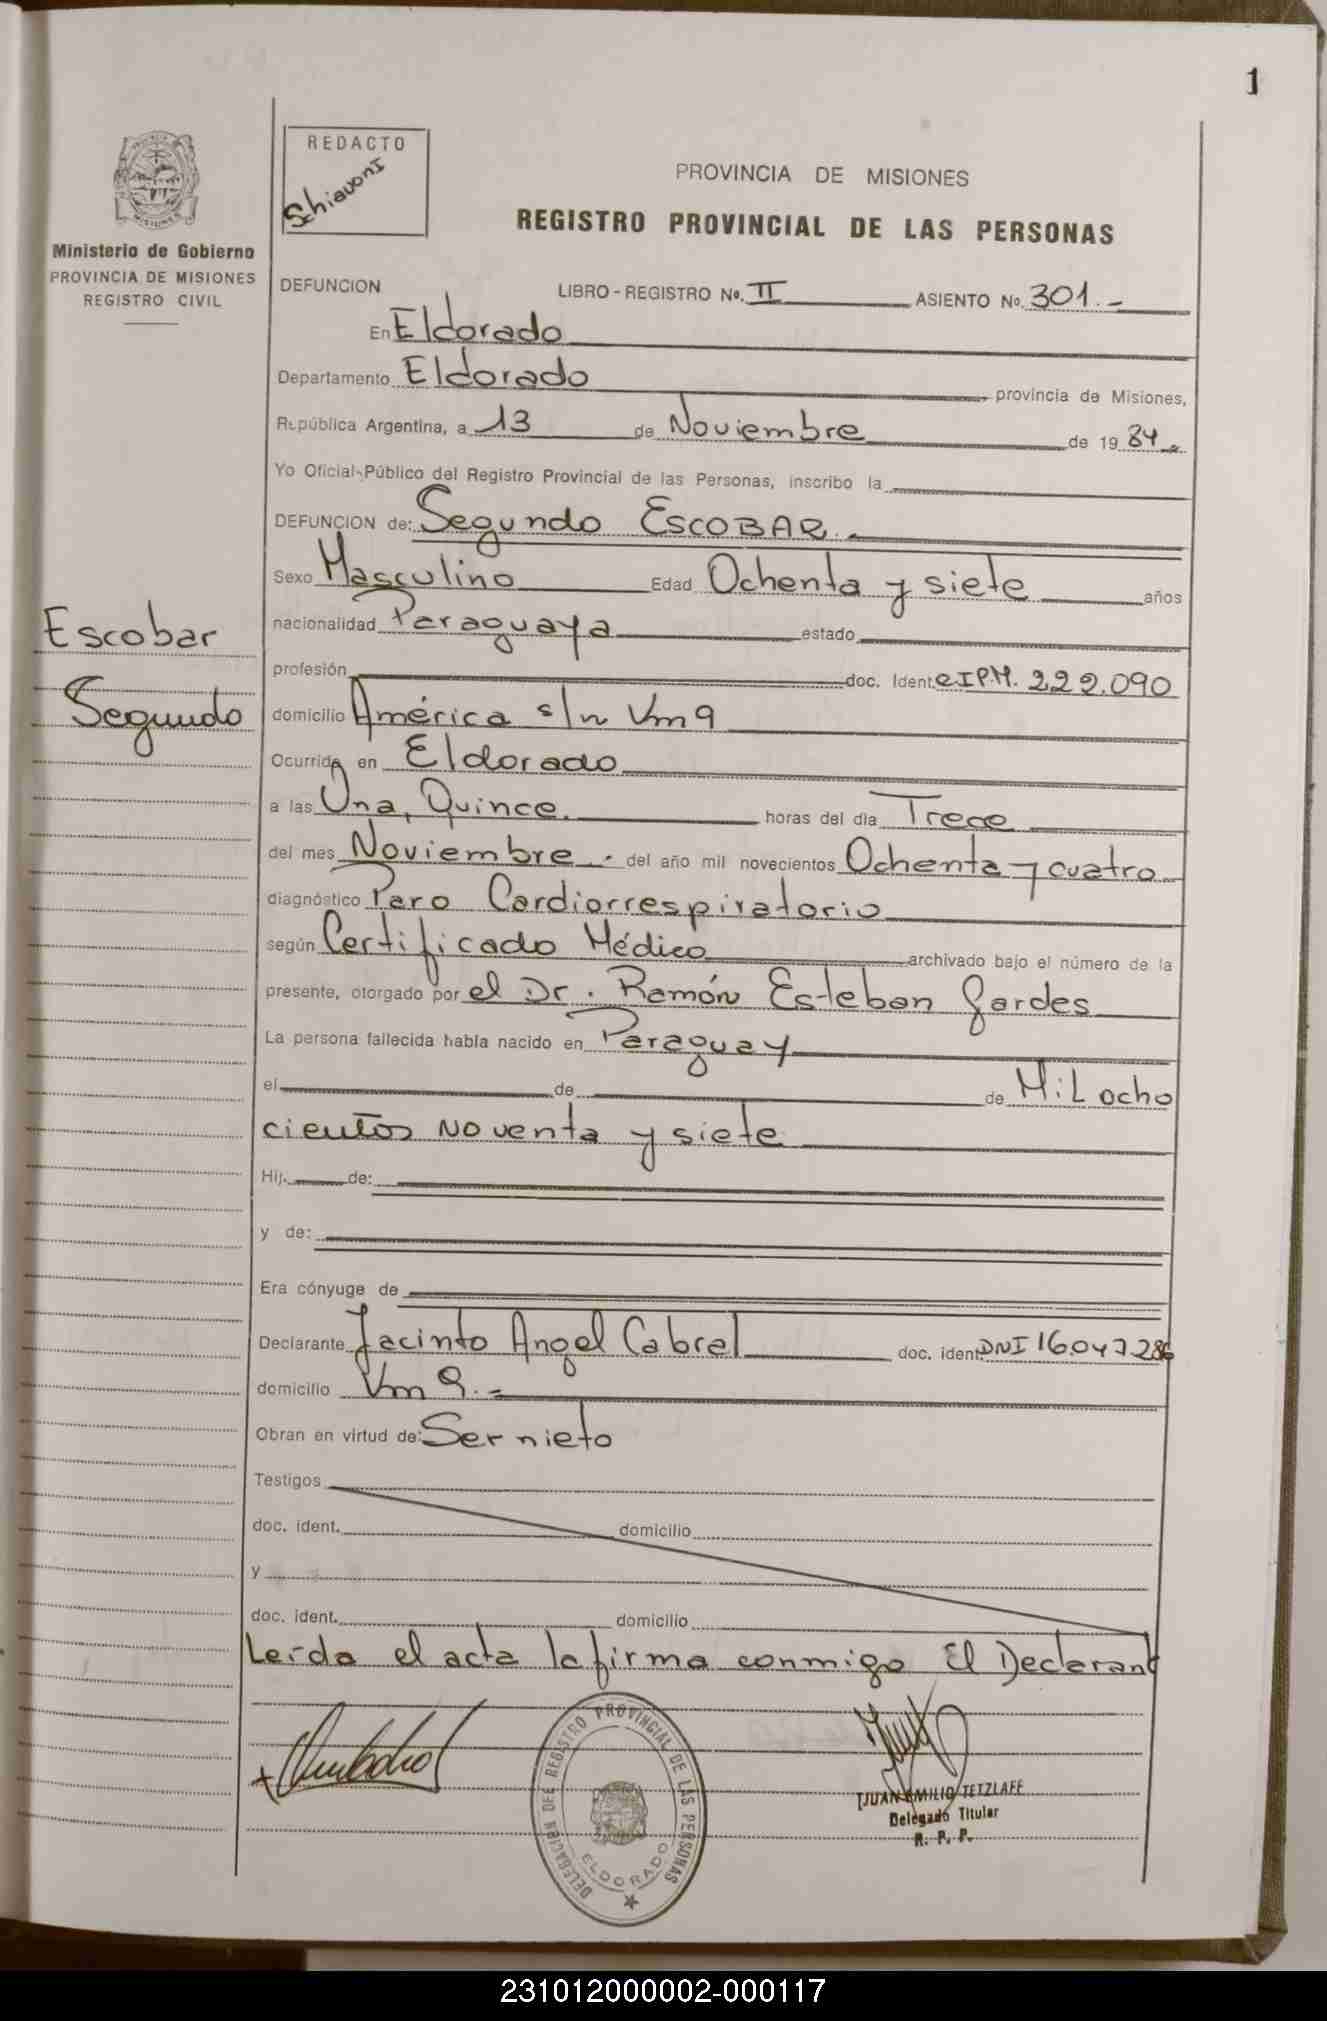 1
REDACTO
Schiavoni
Ministerio de Gobierno
PROVINCIA DE MISIONES
REGISTRO CIVIL
PROVINCIA DE MISIONES
REGISTRO PROVINCIAL DE LAS PERSONAS
DEFUNCION LIBRO-REGISTRO No. II ASIENTO No. 301.-
En Eldorado
Departamento Eldorado provincia de Misiones,
República Argentina, a 13 de Noviembre de 19 84.-
Yo Oficial Público del Registro Provincial de las Personas, inscribo la
DEFUNCION de: Segundo ESCOBAR.-
Sexo Masculino Edad Ochenta y siete años
Escobar
nacionalidad Paraguaya estado
profesión doc. Ident. CIPM. 222.090
Segundo
domicilio América s/n Vm9
Ocurrida en Eldorado
a las Una, Quince. horas del día Trece
del mes Noviembre.- del año mil novecientos Ochenta y cuatro
diagnóstico Paro Cardiorrespiratorio
según Certificado Médico archivado bajo el número de la
presente, otorgado por el Dr. Ramón Esteban Gardes
La persona fallecida había nacido en Paraguay
el de de Mil ocho
cientos noventa y siete
Hij. de:
y de:
Era cónyuge de
Declarante Jacinto Angel Cabral doc. ident. DNI 16.047286
domicilio Vm 9.-
Obran en virtud de: Ser nieto
Testigos
doc. ident. domicilio
y
doc. ident. domicilio
Leída el acta la firma conmigo El Declarant
DELEGACION DEL REGISTRO PROVINCIAL DE LAS PERSONAS
ELDORADO
JUAN EMILIO TETZLAFF
Delegado Titular
R. P. P.
231012000002-000117